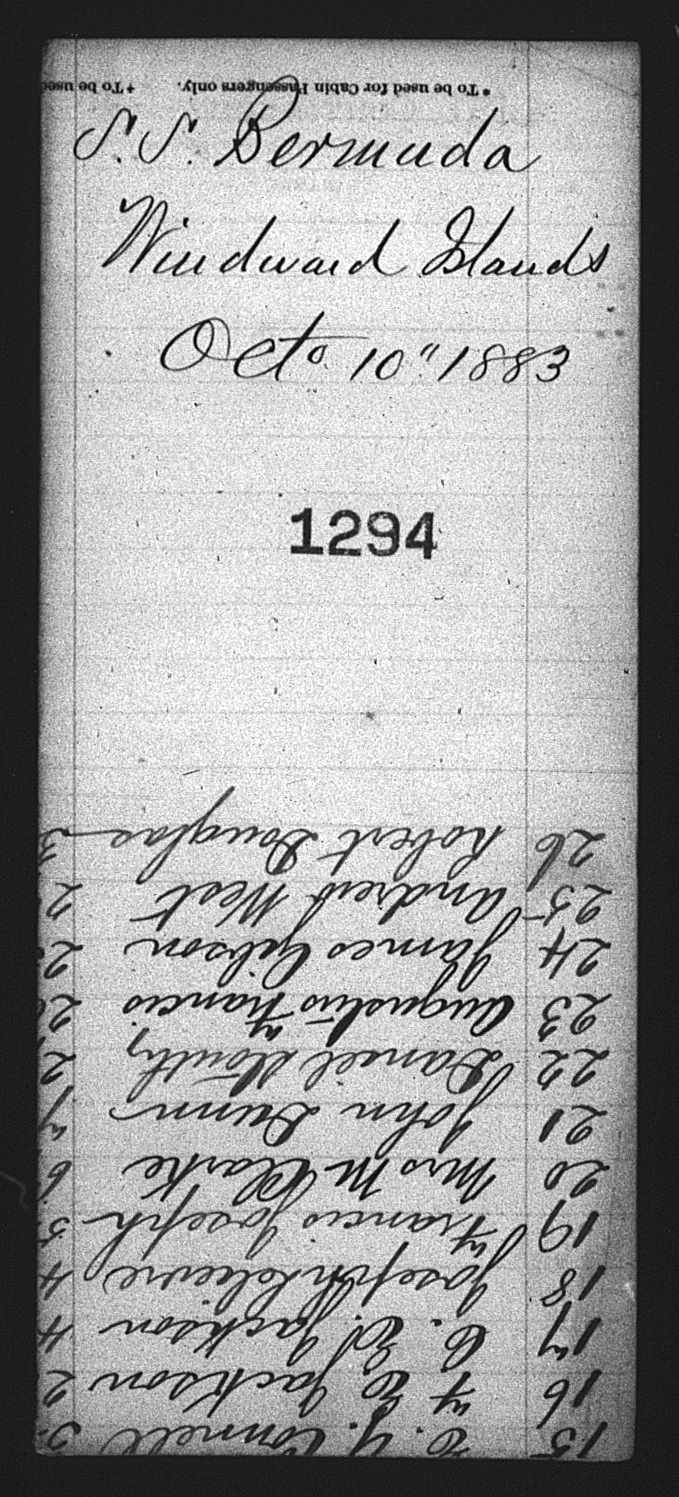 *To be used for Cabin Passengers only. †To be used
S.S. Bermuda
Windward Islands
Octo. 10" 1883
1294
15 E. J. Connell
16 F E Jackson 2
17 C. E. Jackson 4
18 Joseph 4
19 Francis Joseph 5
20 Mrs M Clarke 6
21 John Dunn
22 Daniel 2
23 Augustus Francis 2
24 James Gibson 2
25 Andrew West 2
26 Robert Douglas 3